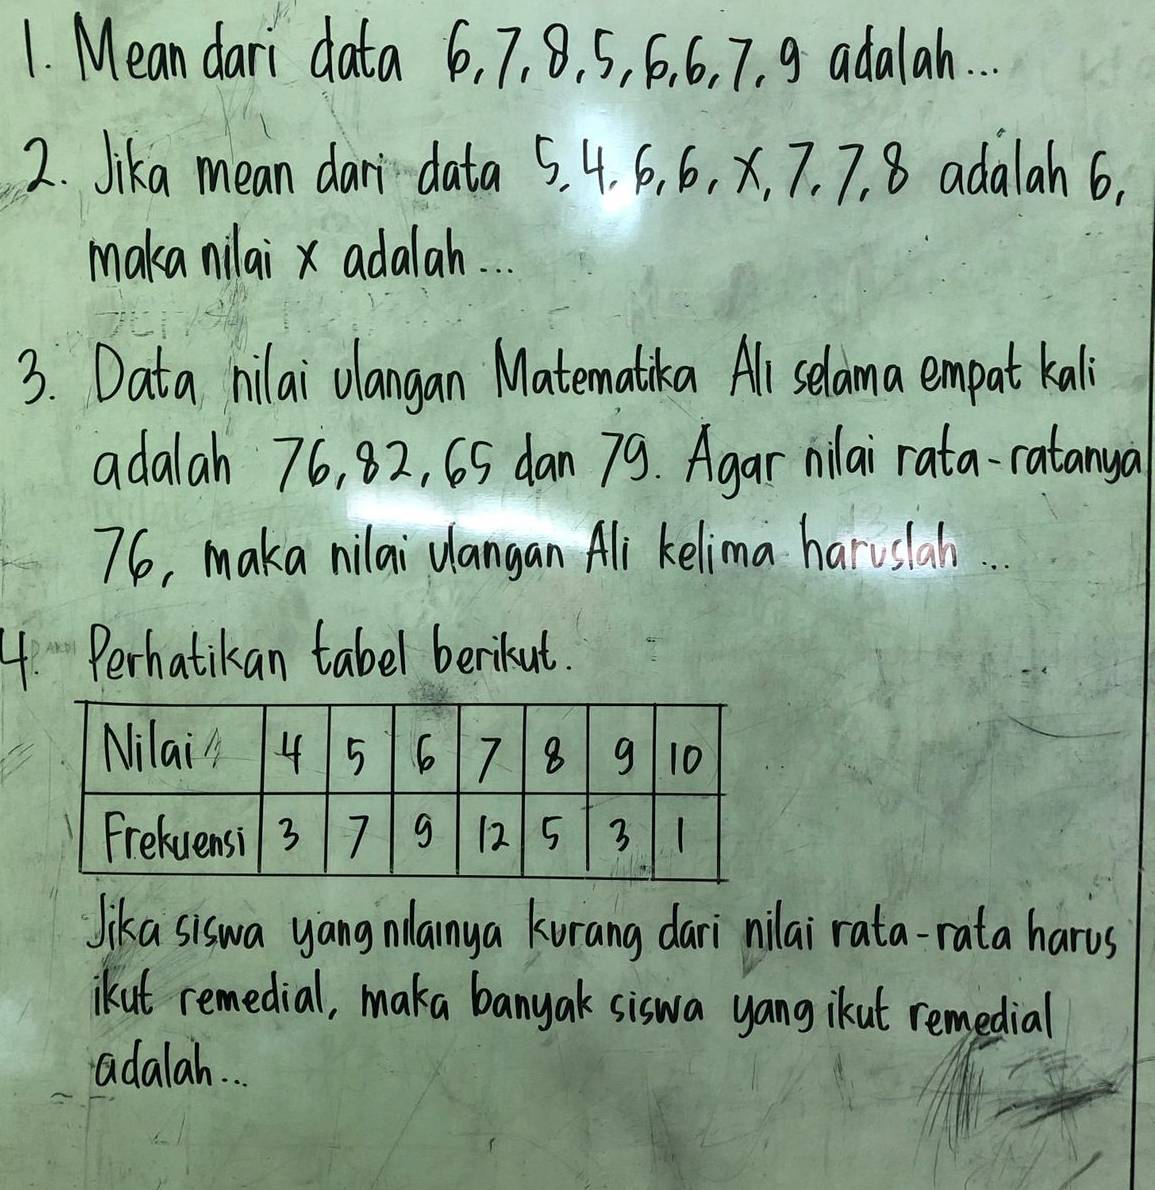 1. Mean dari data 6, 7, 8, 5, 6, 6, 7, 9 adalah ...
2. Jika mean dari data 5, 4, 6, 6, x, 7, 7, 8 adalah 6,
maka nilai x adalah ...
3. Data nilai ulangan Matematika Ali selama empat kali
adalah 76, 82, 65 dan 79. Agar nilai rata-ratanya
76, maka nilai ulangan Ali kelima haruslah ...
4. Perhatikan tabel berikut.
Nilai 4 5 6 7 8 9 10
Frekuensi 3 7 9 12 5 3 1
Jika siswa yang nilainya kurang dari nilai rata-rata harus
ikut remedial, maka banyak siswa yang ikut remedial
adalah ...